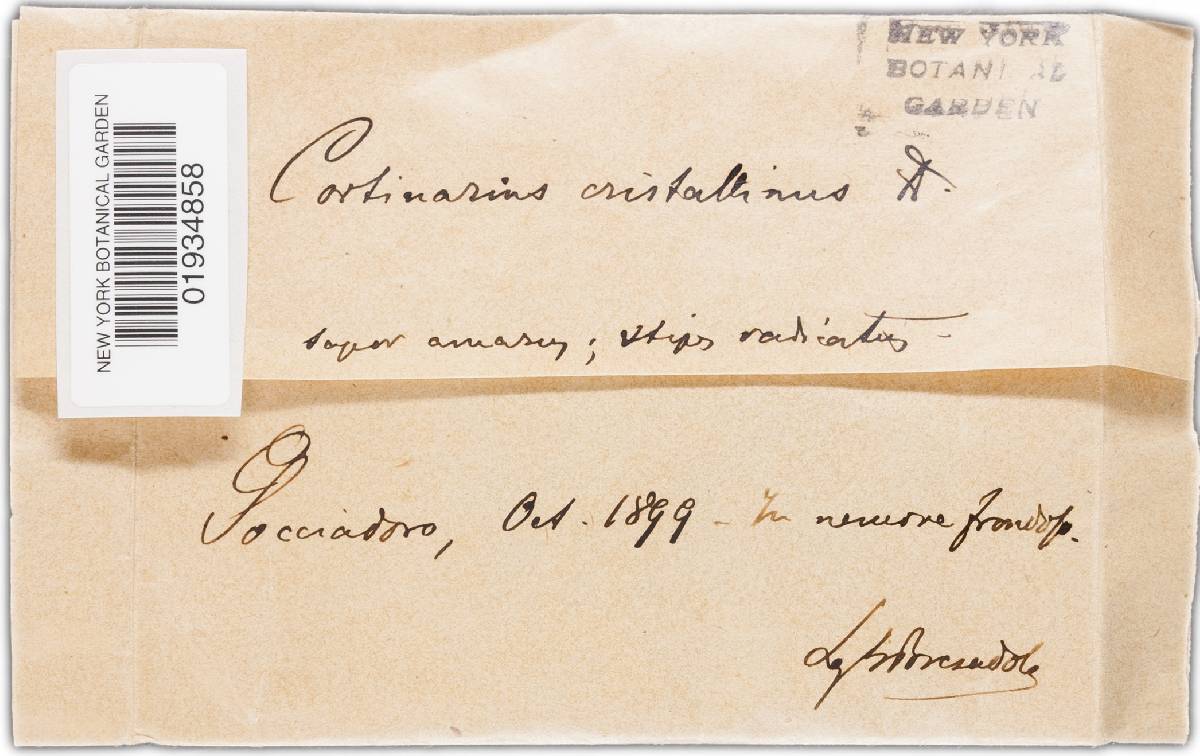 NEW YORK
BOTANICAL
GARDEN
NEW YORK BOTANICAL GARDEN
01934858
Cortinarius cristallinus Fr.
sapor amarus; stipes radicatus
Pocciadoro, Oct. 1899 - In nemore frondoso.
Bresadola